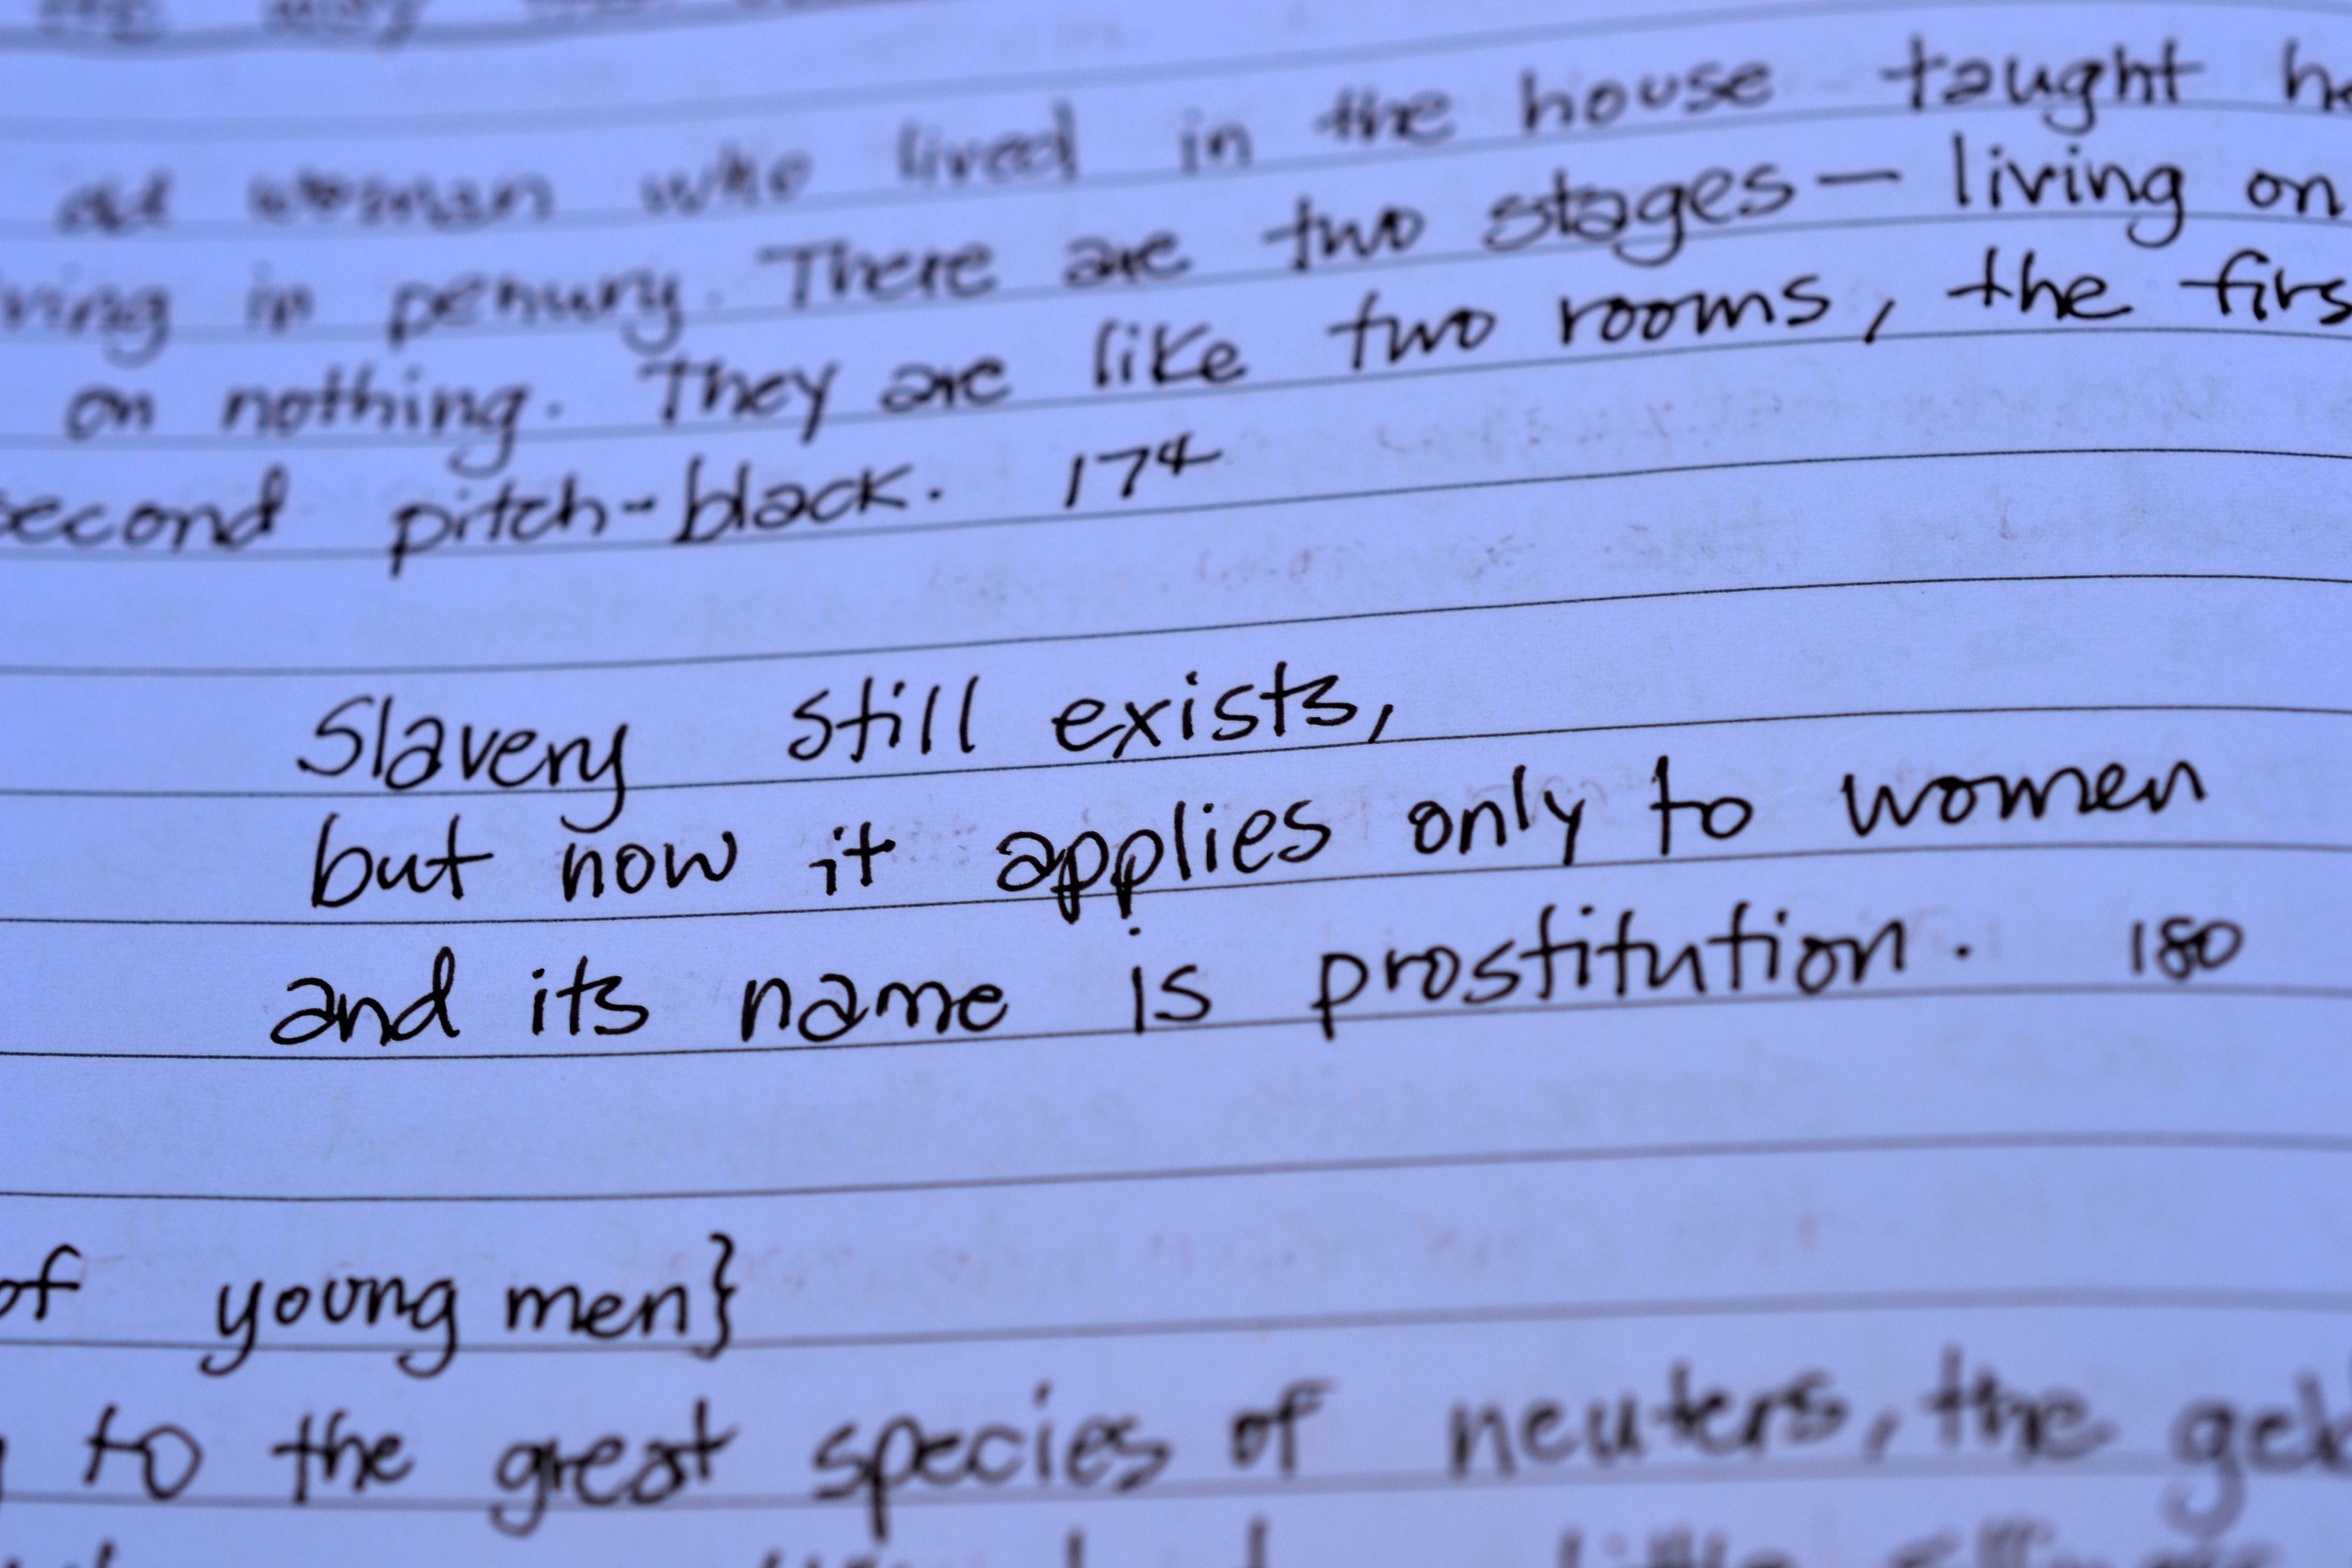 old woman who lived in the house taught he
ving in penury. There are two stages — living on
on nothing. They are like two rooms, the firs
second pitch-black. 174
Slavery still exists,
but now it applies only to women
and its name is prostitution. 180
of young men}
to the great species of neuters, the gel